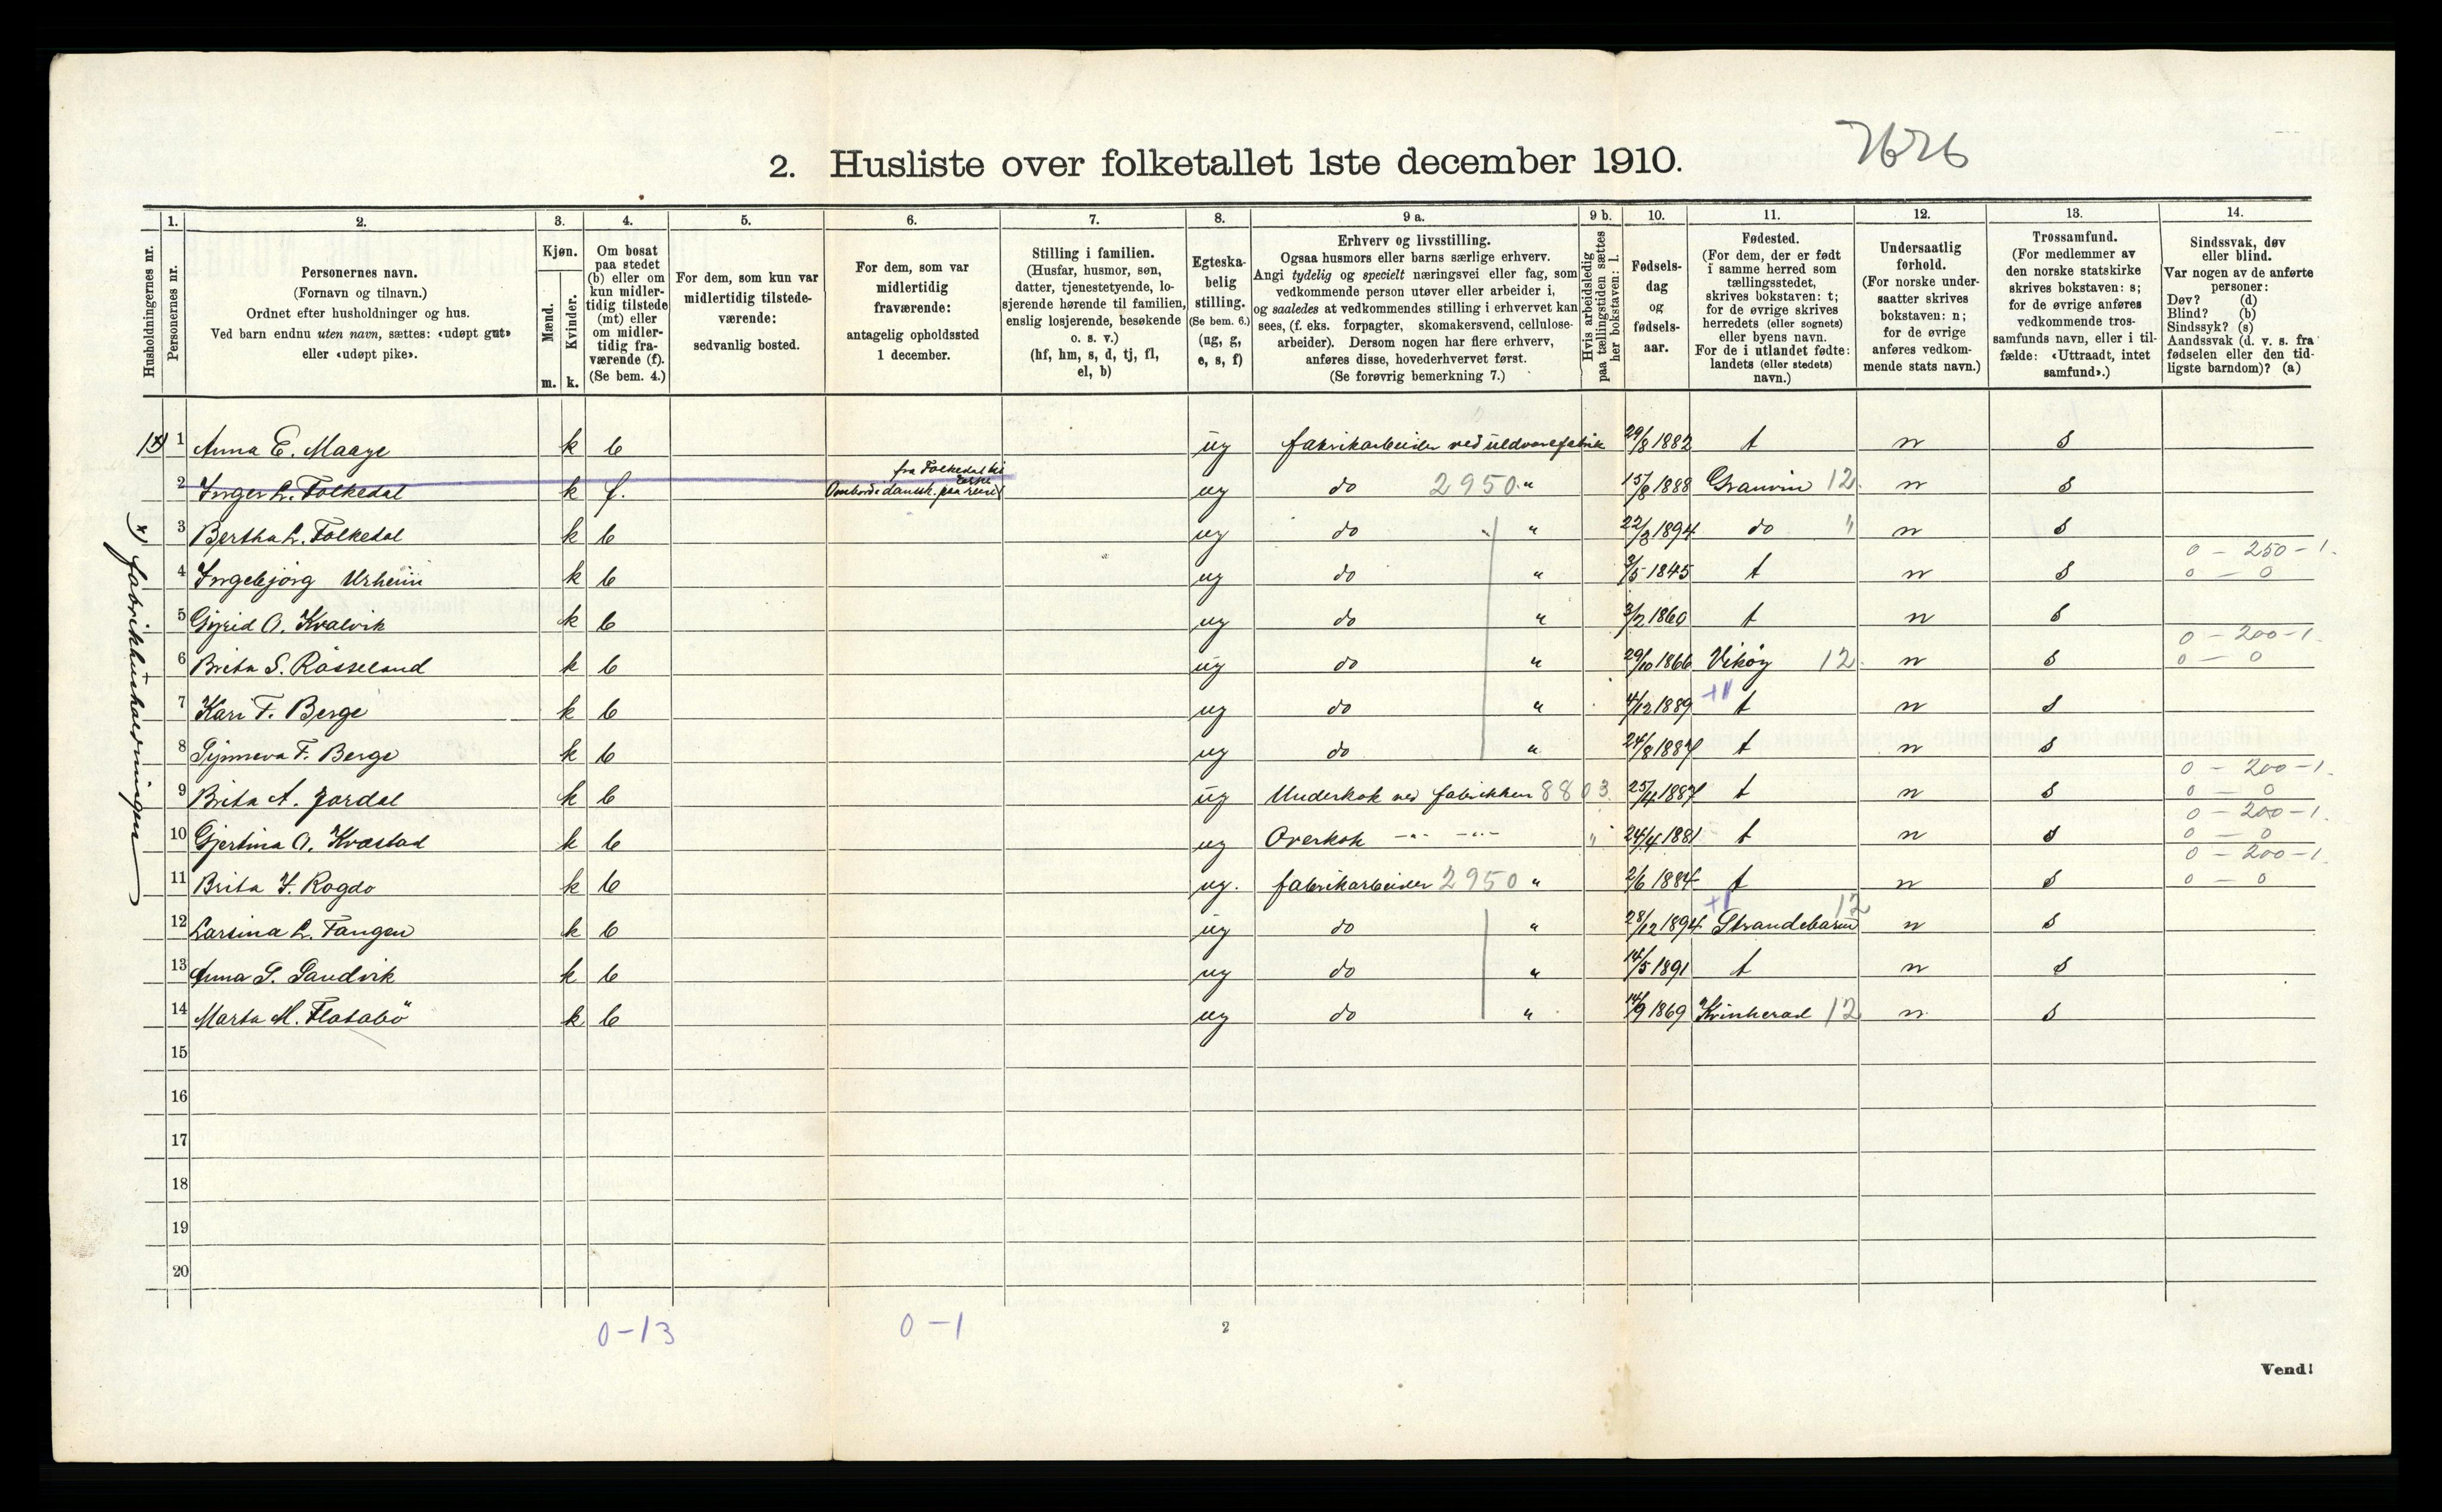 7626
2. Husliste over folketallet 1ste december 1910.
Husholdningernes nr.
1. Personernes nr.
2. Personernes navn.
(Fornavn og tilnavn.)
Ordnet efter husholdninger og hus.
Ved barn endnu uten navn, sættes: «udøpt gut»
eller «udøpt pike».
3. Kjøn.
Mænd. Kvinder.
m. k.
4. Om bosat
paa stedet
(b) eller om
kun midler-
tidig tilstede
(mt) eller
om midler-
tidig fra-
værende (f).
(Se bem. 4.)
5. For dem, som kun var
midlertidig tilstede-
værende:
sedvanlig bosted.
6. For dem, som var
midlertidig
fraværende:
antagelig opholdssted
1 december.
7. Stilling i familien.
(Husfar, husmor, søn,
datter, tjenestetyende, lo-
sjerende hørende til familien,
enslig losjerende, besøkende
o. s. v.)
(hf, hm, s, d, tj, fl,
el, b)
8. Egteska-
belig
stilling.
(Se bem. 6.)
(ug, g,
e, s, f)
9 a. Erhverv og livsstilling.
Ogsaa husmors eller barns særlige erhverv.
Angi tydelig og specielt næringsvei eller fag, som
vedkommende person utøver eller arbeider i,
og saaledes at vedkommendes stilling i erhvervet kan
sees, (f. eks. forpagter, skomakersvend, cellulose-
arbeider). Dersom nogen har flere erhverv,
anføres disse, hovederhvervet først.
(Se forøvrig bemerkning 7.)
9 b. Hvis arbeidsledig
paa tællingstiden sættes
her bokstaven: l.
10. Fødsels-
dag
og
fødsels-
aar.
11. Fødested.
(For dem, der er født
i samme herred som
tællingsstedet,
skrives bokstaven: t;
for de øvrige skrives
herredets (eller sognets)
eller byens navn.
For de i utlandet fødte:
landets (eller stedets)
navn.)
12. Undersaatlig
forhold.
(For norske under-
saatter skrives
bokstaven: n;
for de øvrige
anføres vedkom-
mende stats navn.)
13. Trossamfund.
(For medlemmer av
den norske statskirke
skrives bokstaven: s;
for de øvrige anføres
vedkommende tros-
samfunds navn, eller i til-
fælde: «Uttraadt, intet
samfund».)
14. Sindssvak, døv
eller blind.
Var nogen av de anførte
personer:
Døv? (d)
Blind? (b)
Sindssyk? (s)
Aandssvak (d. v. s. fra
fødselen eller den tid-
ligste barndom)? (a)
1 x) 1 Anna E. Maage k b ug fabrikarbeider ved uldvarefabrik 29/8 1882 t n s
fra Folkedal til
2 Inger L. Folkedal k f. Ombord i dampsk. paa reise ug do 2950 " 15/8 1888 Granvin 12 n s
3 Bertha L. Folkedal k b ug do " 22/3 1894 do " n s
0 - 250 - 1.
4 Ingebjörg Urheim k b ug do " 3/5 1845 t n s 0 - 0
5 Gyrid O. Kvalvik k b ug do " 3/2 1860 t n s
0 - 200 - 1.
6 Brita S. Rösseland k b ug do " 29/10 1866 Vikøy 12. n s 0 - 0
7 Kari T. Berge k b ug do " 4/12 1889 t n s
8 Synneva T. Berge k b ug do " 24/8 1887 t n s
0 - 200 - 1.
9 Brita A. Jordal k b ug Underkok ved fabrikken 8803 25/4 1887 t n s 0 - 0
0 - 200 - 1.
10 Gjertina O. Kvæstad k b ug Overkok -"- -"- " 24/4 1881 t n s 0 - 0
0 - 200 - 1.
11 Brita I. Rogdo k b ug. fabrikarbeider 2950 " 2/6 1884 t n s 0 - 0
12 Larsina L. Tangen k b ug do " 28/12 1894 Strandebarm 12 n s
13 Anna S. Sandvik k b ug do " 14/5 1891 t n s
14 Marta M. Flatabö k b ug do " 14/9 1869 Kvinherad 12 n s
15
16
17
18
19
20
x) fabrikhusholdningen
0-13 0-1
2
Vend!